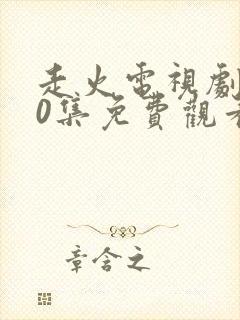 走火電視劇
0集免費觀看
章含之